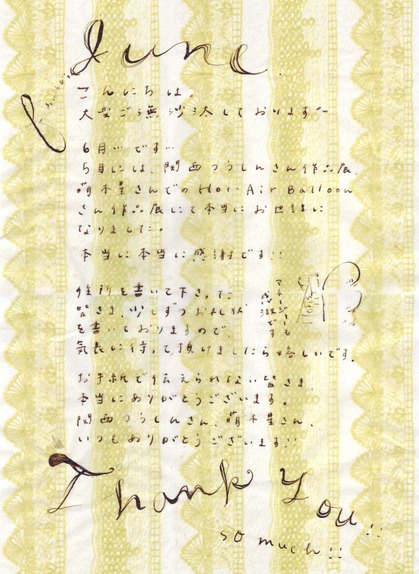 June.
こんにちは。
大変ご無沙汰しております
6月…です…
5月には、関西つうしんさん作品展、
萌木星さんでのHot Air Balloon
さん作品展にて本当にお世話に
なりました。
本当に本当に感謝です!!
住所を書いて下さった
皆さま、少しずつお礼状
を書いておりますので
気長に待って頂けましたら嬉しいです。
お手紙で伝えられない皆さま、
本当にありがとうございます。
関西つうしんさん、萌木星さん、
いつもありがとうございます!!
Thank You!!
so much!!